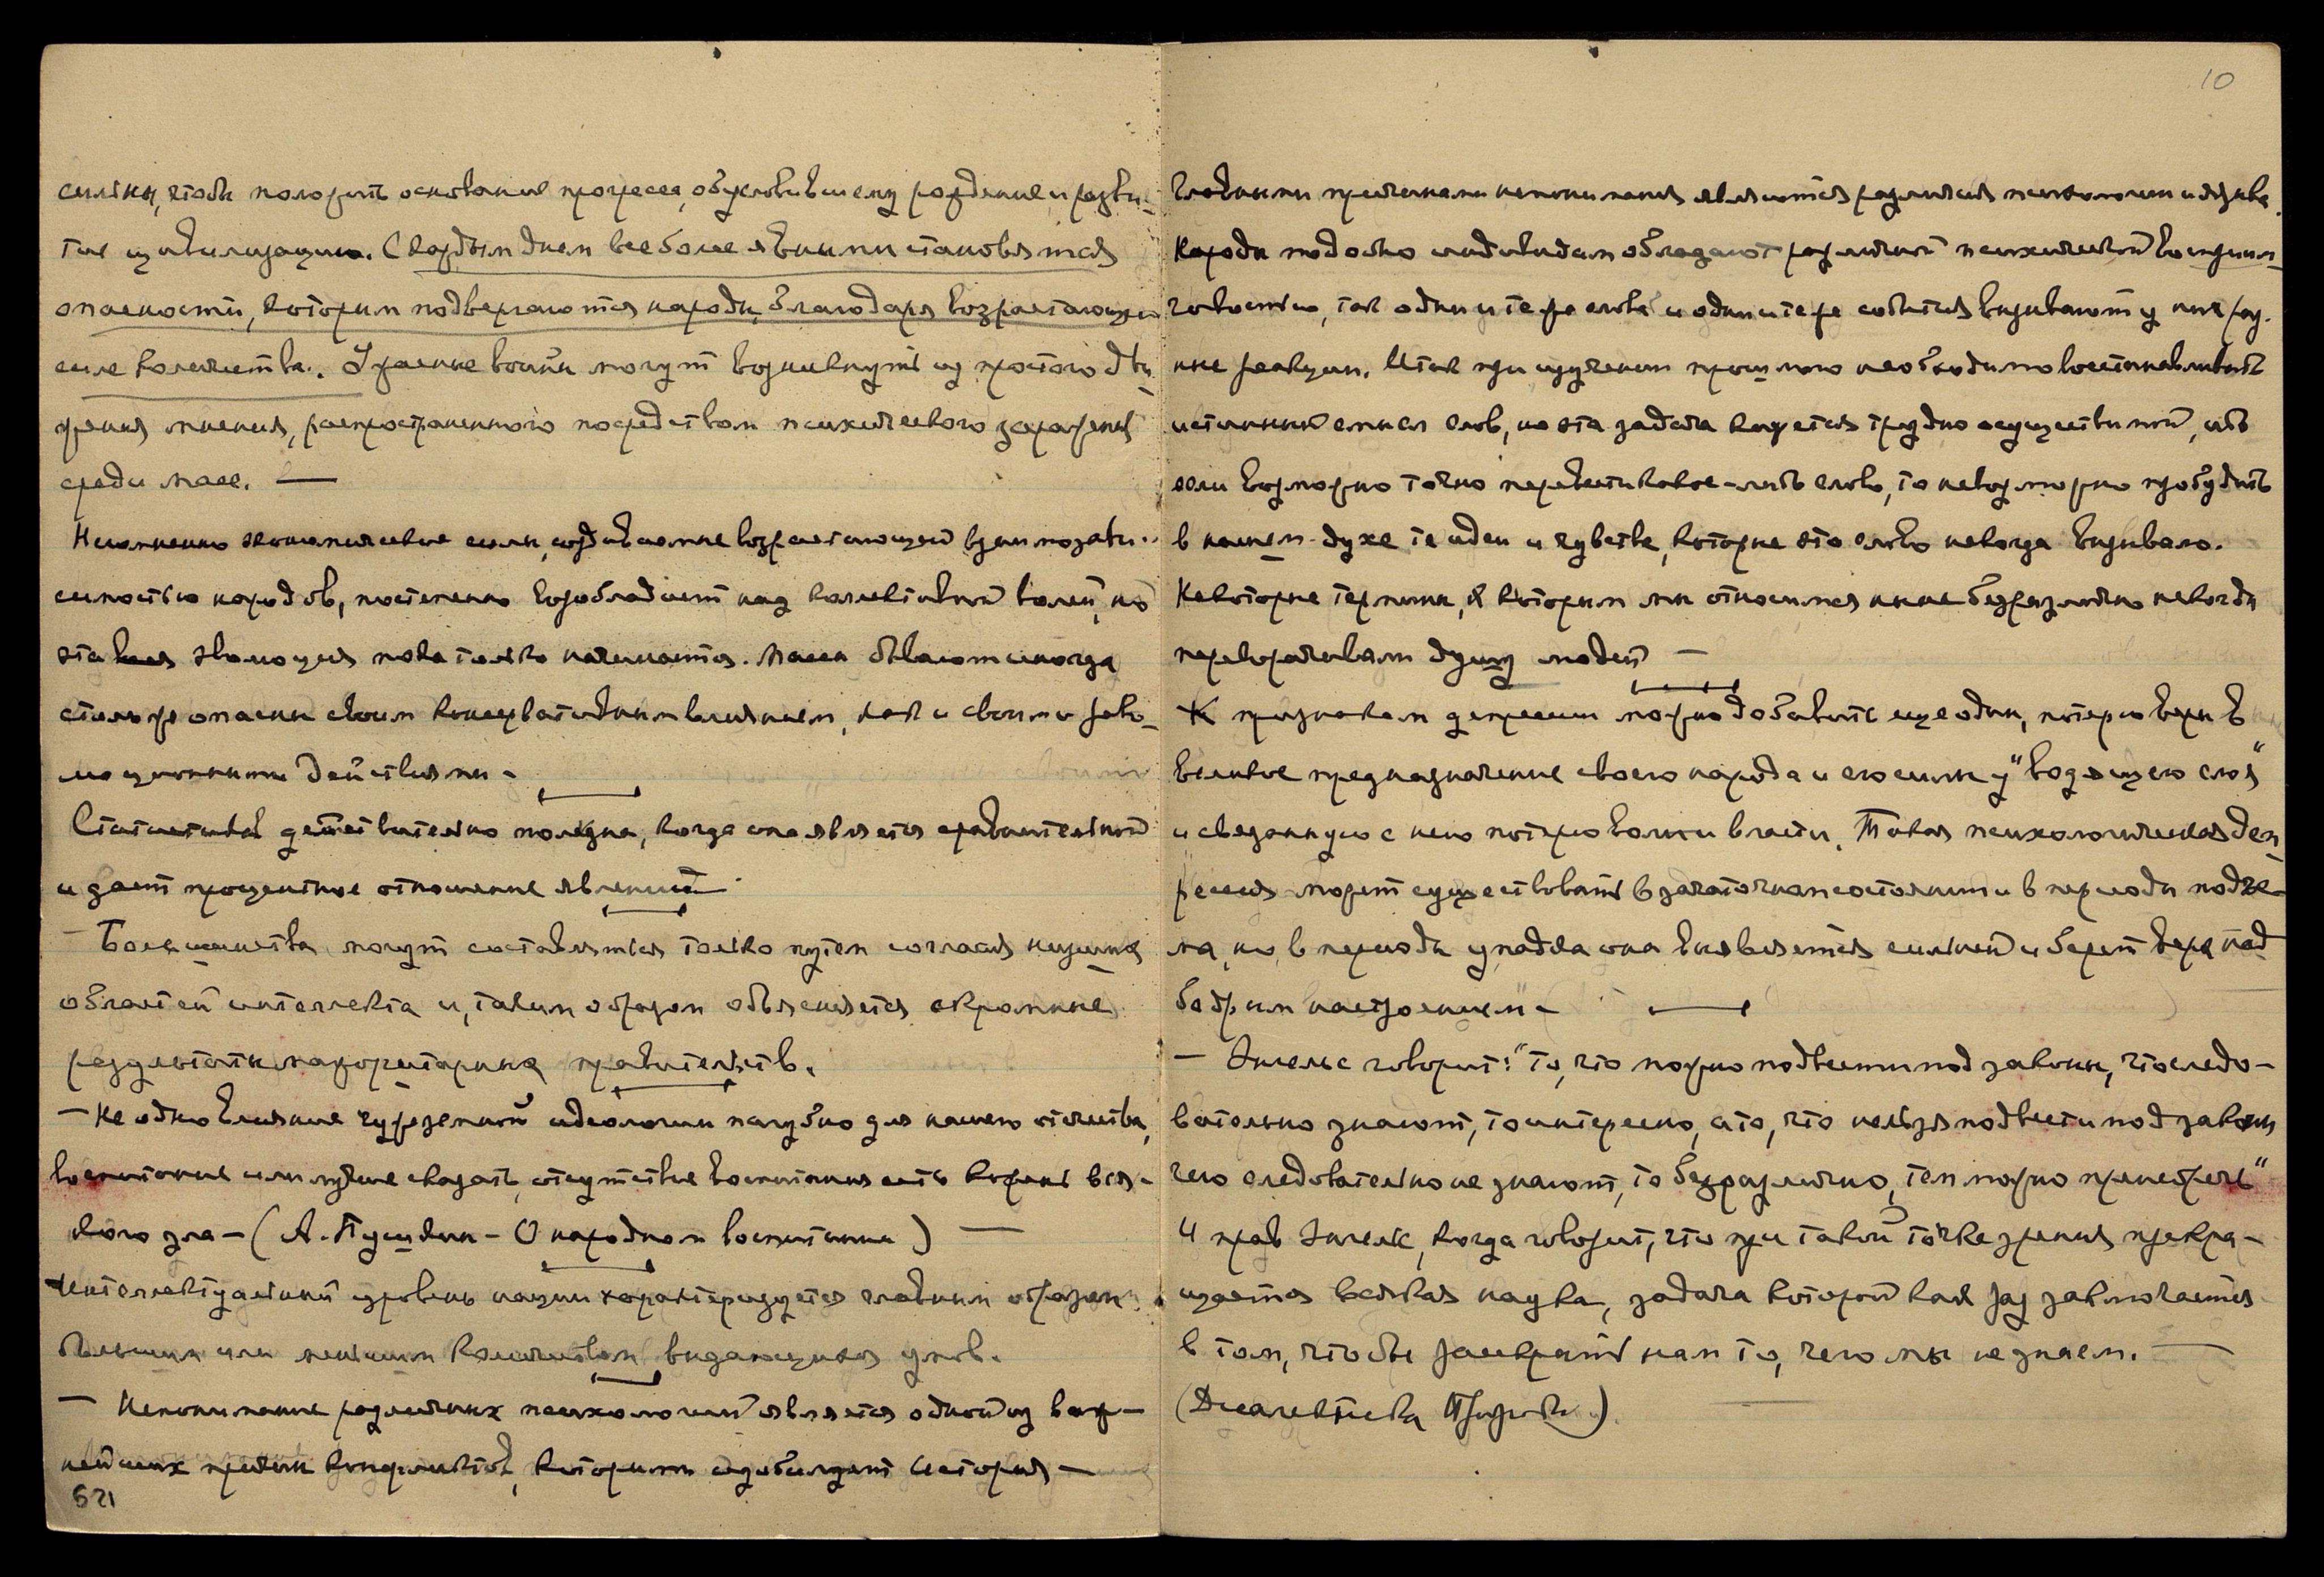 сильны, чтобы положить основание прогресса, обусловившему рождение и разви-
тие цивилизации. С каждым днем все более явными становятся
опасности, которым подвергаются народы, благодаря возрастающей
силе количества. Ужасные войны могут возникнуть из простого дви-
жения мнения, распространенного посредством психического заражения
среди масс. —
Несомненно экономические силы, создаваемые возрастающей взаимозави-
симостью народов, постепенно возобладают над коллективной волей, но
эта эволюция пока только начинается. Массы бывают иногда
столь же опасны своим консервативным влиянием, как и своими рево-
люционными действиями —
Статистика действительно полезна, когда она является сравнительной
и дает процентное отношение явлений
— Большинства могут составляться только путем согласия низших
областей интеллекта и, таким образом объясняется скромные
результаты мажоритарных правительств.
— Не одно влияние чужеземной идеологии пагубно для нашего отечества,
воспитание или лучше сказать, отсутствие воспитания есть корень вся-
кого зла — (А. Пушкин — О народном воспитании) —
Интеллектуальный уровень нации характеризуется главным образом
большим или меньшим количеством выдающихся умов.
— Непонимание различных психологий является одной из важ-
нейших причин конфликтов, которыми изобилует история —
621
10
Главными причинами непонимания являются различия психологии и языка.
Народы подобно индивидам обладают различной психической восприим-
чивостью, так одни и те же слова и одни и те же события вызывают у них раз-
ные реакции. Итак при изучении прошлого необходимо восстанавливать
истинный смысл слов, но эта задача кажется трудно осуществимой, ибо
если возможно точно перевести какое-либо слово, то невозможно пробудить
в нашем духе те идеи и чувства, которые это слово некогда вызывало.
Некоторые термины, к которым мы относимся ныне безразлично некогда
переворачивали душу людей —
К признакам депрессии можно добавить еще один, потерю веры в
великое предназначение своего народа и его силы у "водящего слоя"
и связанную с нею потерю воли к власти. Такая психологическая деп-
рессия может существовать в зачаточном состоянии и в периоды подъе-
ма, но в периоды упадка она выявляется сильней и берет верх над
бодрым настроением" —
— Энгельс говорит: "То, что можно подвести под законы, что следо-
вательно знают, то интересно, а то, что нельзя подвести под законы
чего следовательно не знают, то безразлично, тем можно пренебречь"
И прав Энгельс, когда говорит, что при такой точке зрения прекра-
щается всякая наука, задача которой как раз заключается
в том, чтобы раскрыть нам то, чего мы не знаем. —
(Диалектика Природы)